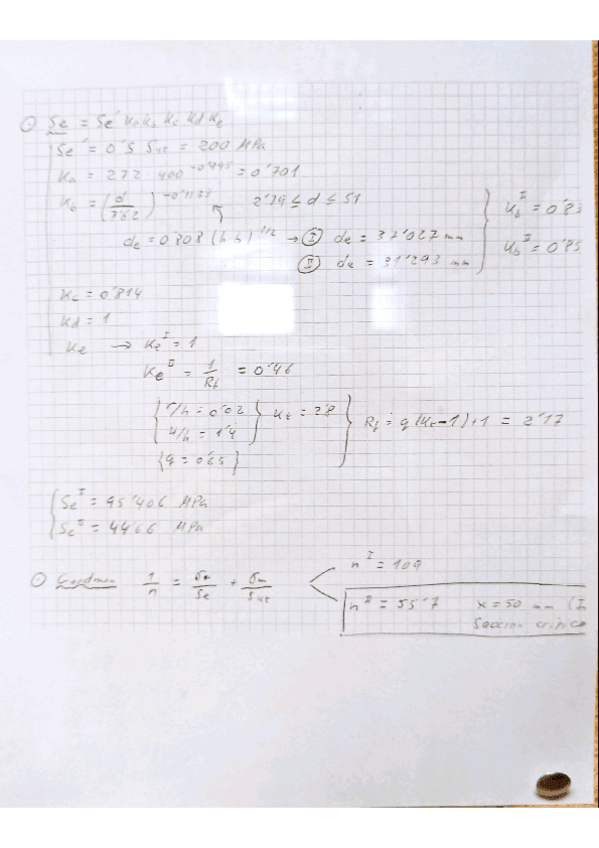 Se = Se' Ka Kb Kc Kd Ke
Se' = 0'5 Sut = 200 MPa
Ka = 272 400^-0'995 = 0'701
Kb = (d/7'62)^-0'1133 2'79 ≤ d ≤ 51
de = 0'808 (h b)^1/2 → I de = 37'027 mm
II de = 31'293 mm
Kb^I = 0'83
Kb^II = 0'85
Kc = 0'814
Kd = 1
Ke → Ke^I = 1
Ke^II = 1/Rf = 0'46
r/h = 0'02
H/h = 1'4
Kt = 2'8
q = 0'65
Rf = q (Kt - 1) + 1 = 2'17
Se^I = 95'406 MPa
Se^II = 44'66 MPa
Goodman 1/n = σa/Se + σm/Sut
n^I = 109
n^II = 55'7 x = 50 mm
Sección crítica